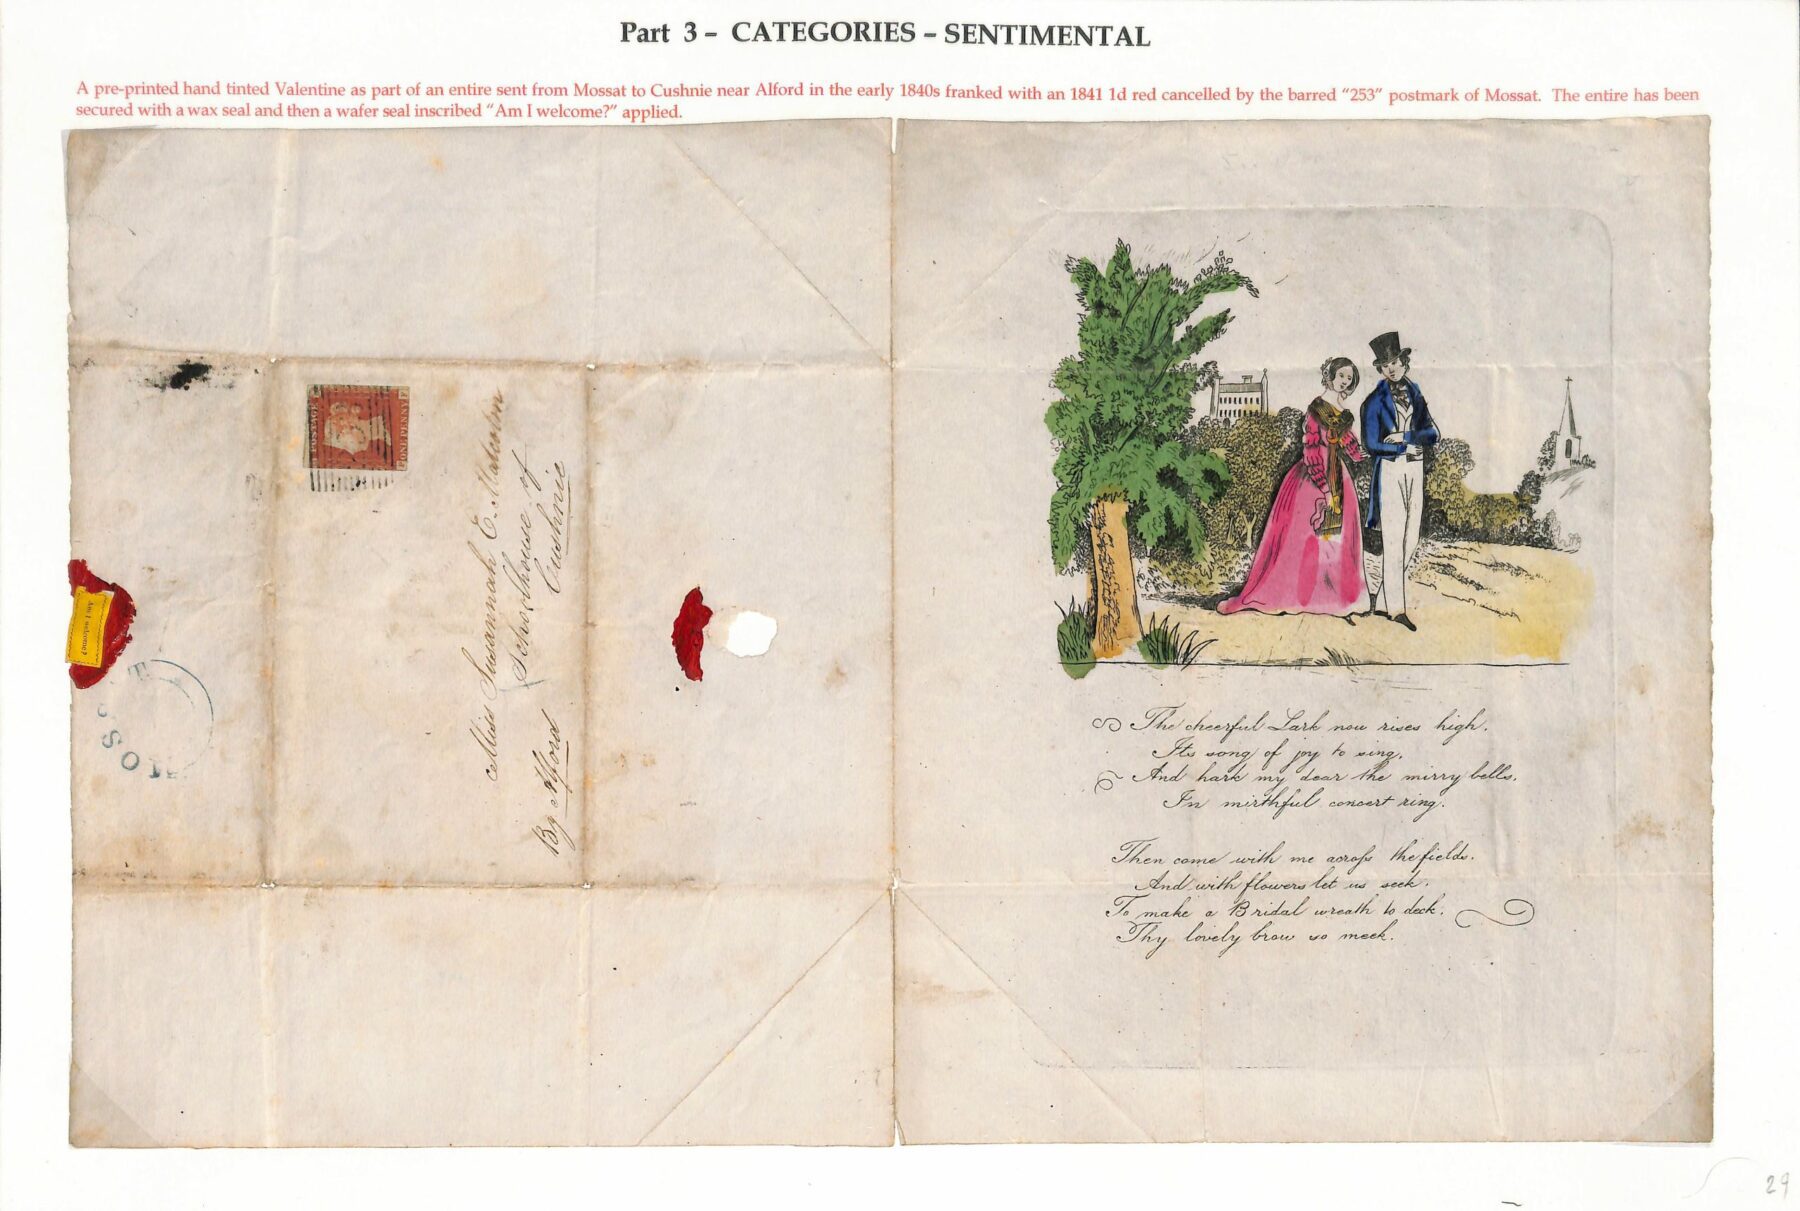 Part 3 – CATEGORIES – SENTIMENTAL
A pre-printed hand tinted Valentine as part of an entire sent from Mossat to Cushnie near Alford in the early 1840s franked with an 1841 1d red cancelled by the barred "253" postmark of Mossat. The entire has been
secured with a wax seal and then a wafer seal inscribed "Am I welcome?" applied.
POSTAGE
ONE PENNY
Miss Susannah E. Malcolm
Schoolhouse of
Cushnie
By Alford
Am I welcome?
The cheerful Lark now rises high.
Its song of joy to sing.
And hark my dear the mirry bells.
In mirthful concert ring.
Then come with me across the fields.
And with flowers let us seek.
To make a Bridal wreath to deck.
Thy lovely brow so meek.
29